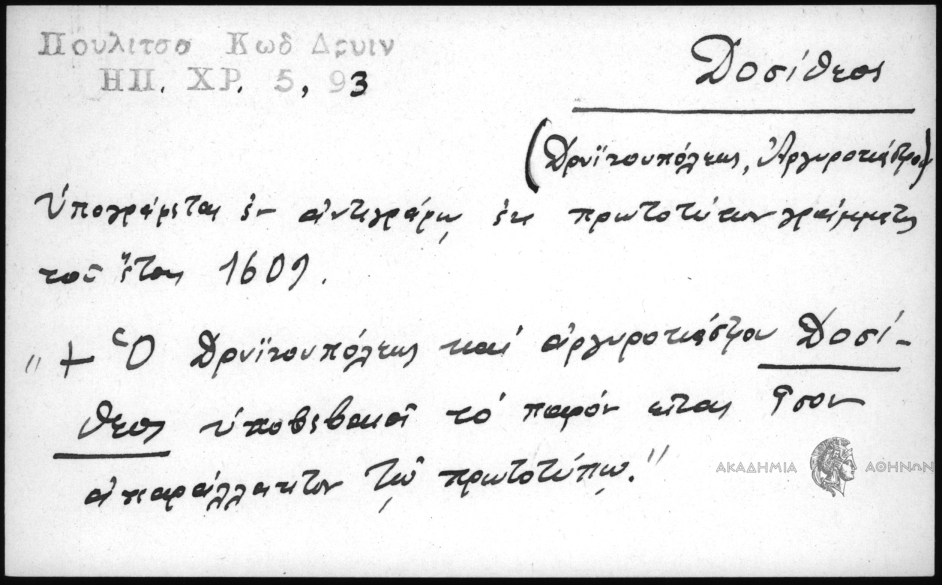 Πουλιτσα Κωδ Δρυιν
ΗΠ. ΧΡ. 5, 93
Δοσίθεος
(Δρυϊνουπόλεως, Ἀργυροκάστρου)
Ὑπογράφεται ἐν ἀντιγράφῳ ἐκ πρωτοτύπου γράμματος
τοῦ ἔτους 1609.
"+ Ὁ Δρυϊνουπόλεως καί ἀργυροκάστρου Δοσί-
θεος ὑποβεβαιοῖ τό παρόν εἶναι ἴσον
ἀπαράλλακτον τῷ πρωτοτύπῳ."
ΑΚΑΔΗΜΙΑ ΑΘΗΝΩΝ